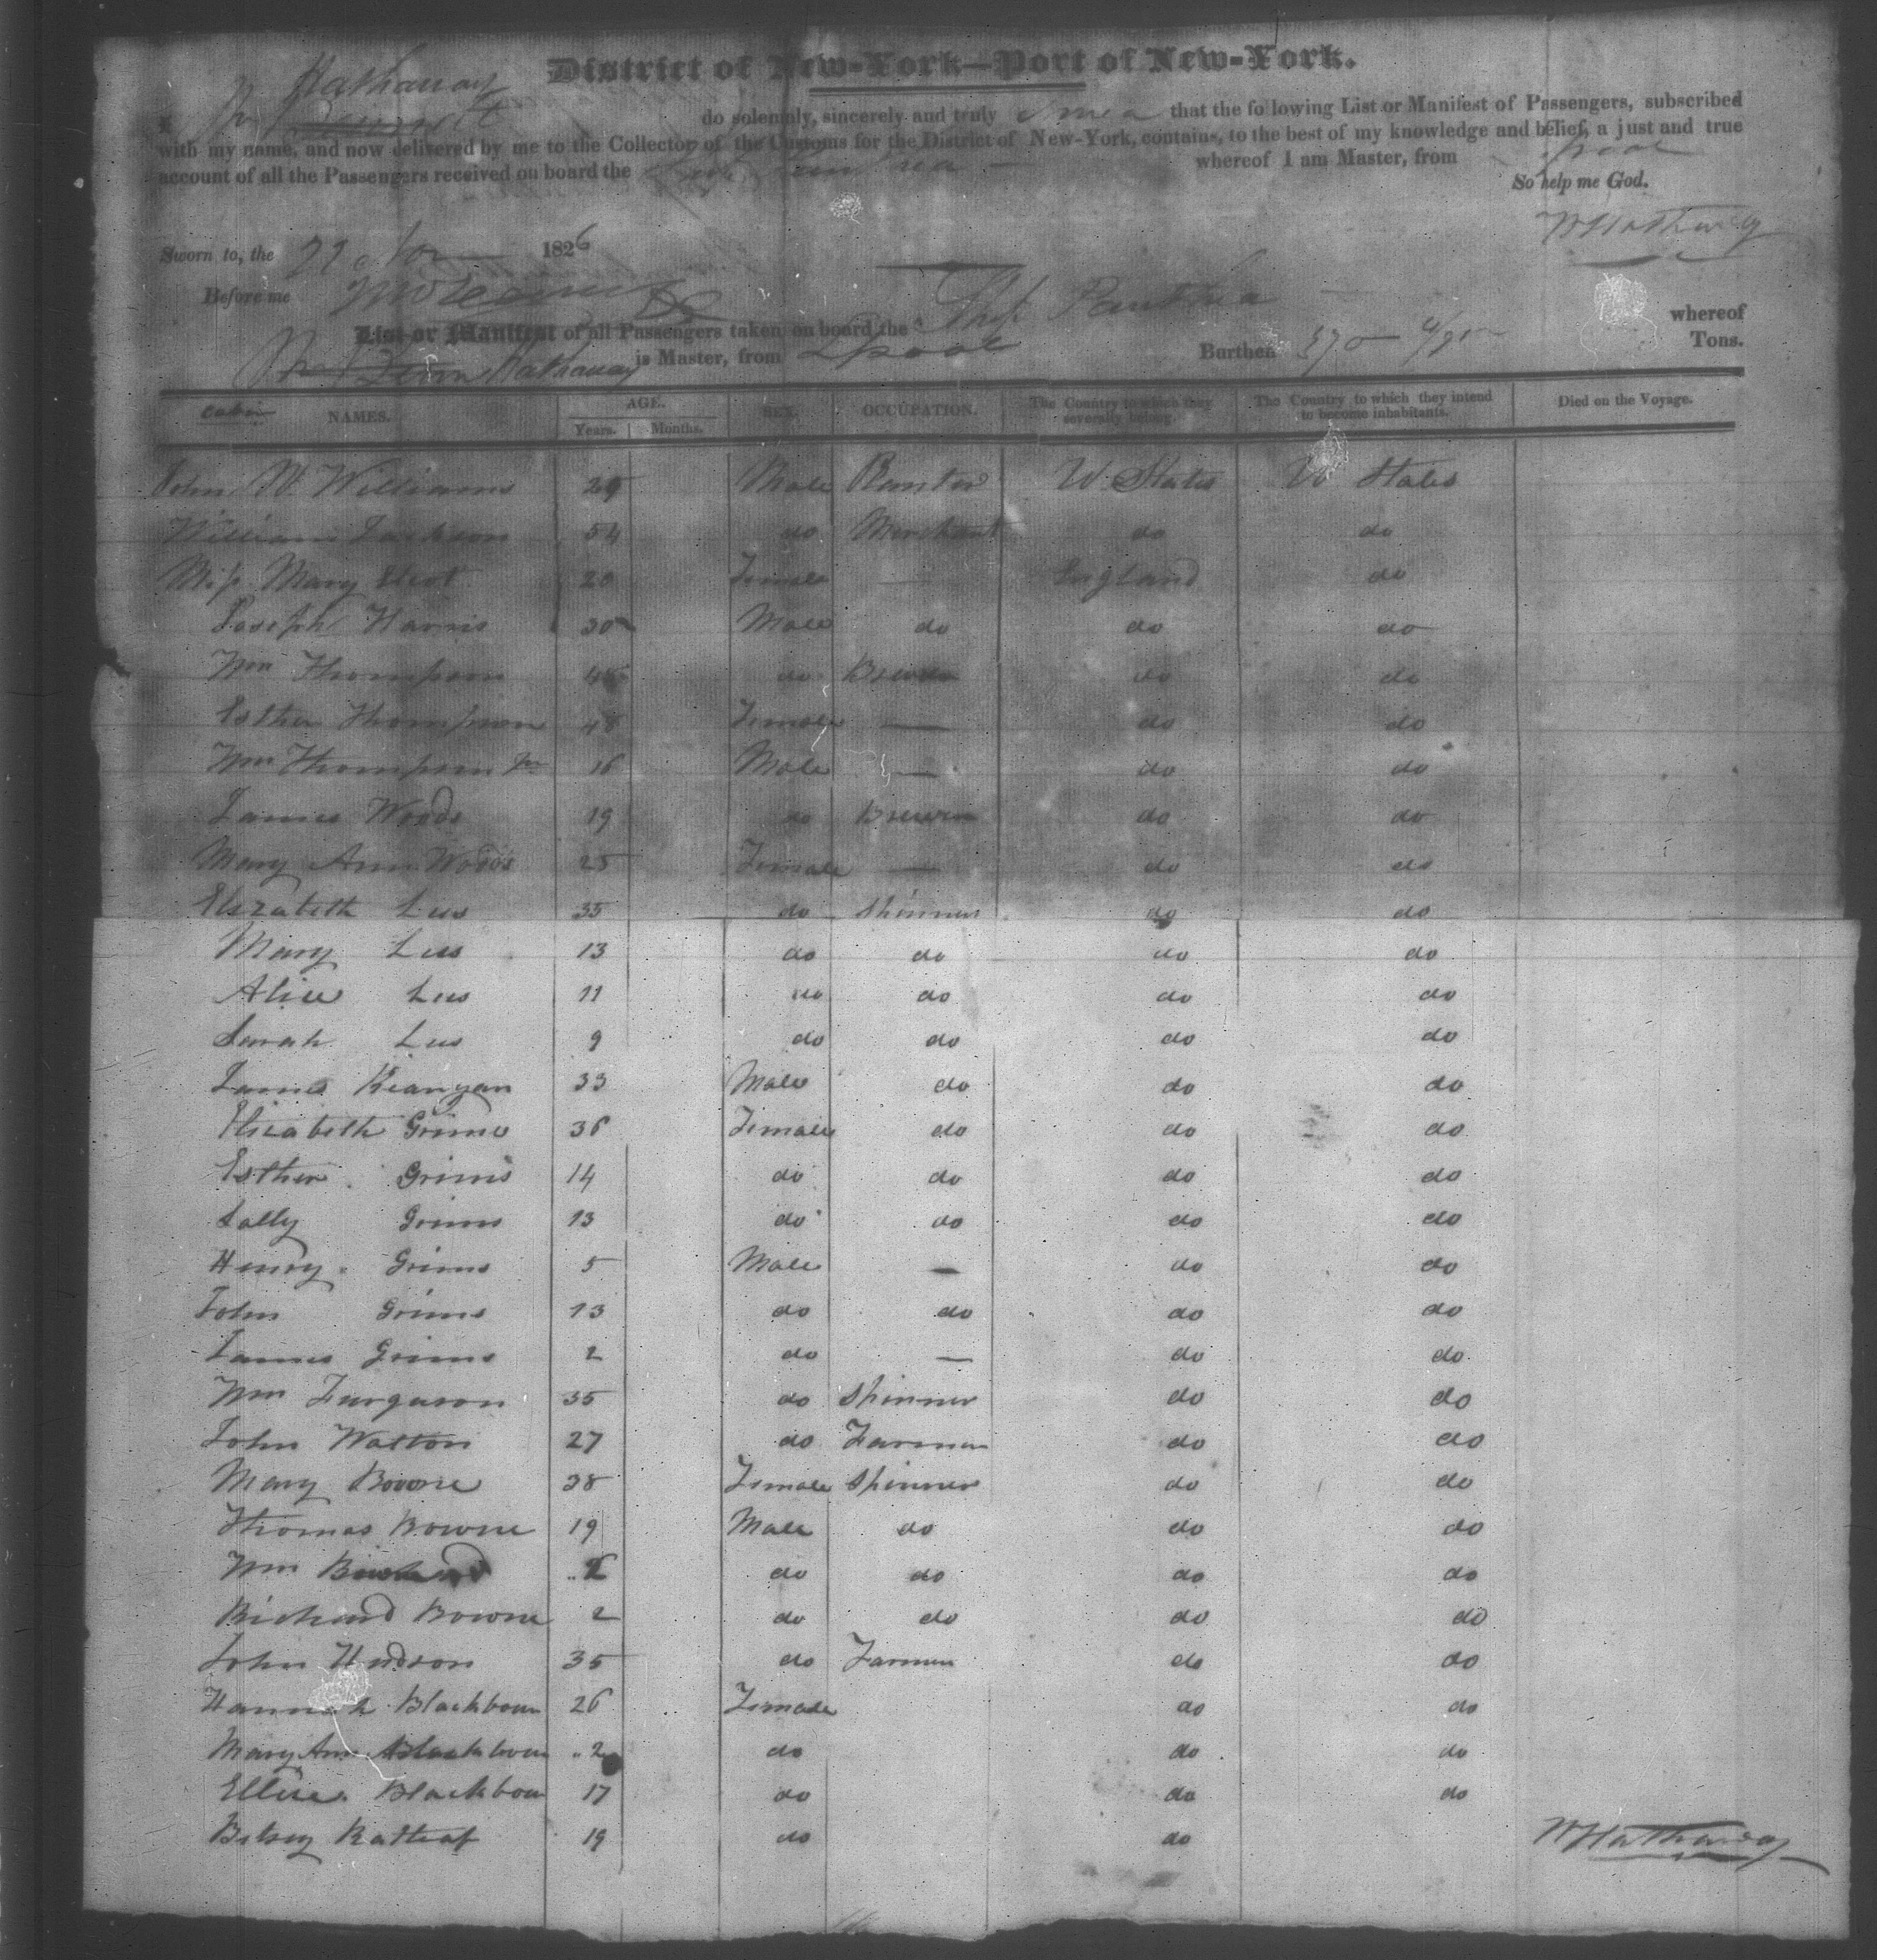 District of New-York—Port of New-York.
I, Wm Hathaway do solemnly, sincerely and truly swear that the following List or Manifest of Passengers, subscribed
with my name, and now delivered by me to the Collector of the Customs for the District of New-York, contains, to the best of my knowledge and belief, a just and true
account of all the Passengers received on board the Ship Panthea whereof I am Master, from Lpool
So help me God.
W Hathaway
Sworn to, the 22 Nov 1826
Before me
List or Manifest of all Passengers taken on board the Ship Panthea whereof
Hathaway is Master, from Lpool Burthen 370 Tons.
Cabin NAMES. AGE. Years. Months. SEX. OCCUPATION. The Country to which they severally belong. The Country to which they intend to become inhabitants. Died on the Voyage.
John W Williams 29 Male U. States U States
William Jackson 54 do Merchant do do
Miss Mary 20 Female — England do
Joseph Harris 30 Male do do do
Wm Thompson 45 do Brewer do do
Esther Thompson 48 Female — do do
Wm Thompson Jr 16 Male — do do
James Woods 19 do Brewer do do
Mary Ann Woods 25 Female — do do
Elizabeth Lees 35 do Spinner do do
Mary Lees 13 do do do do
Alice Lees 11 do do do do
Sarah Lees 9 do do do do
James Keanyan 33 Male do do do
Elizabeth Grimes 36 Female do do do
Esther Grimes 14 do do do do
Sally Grimes 13 do do do do
Henry Grimes 5 Male — do do
John Grimes 13 do do do do
James Grimes 2 do — do do
Wm Furguson 35 do Spinner do do
John Walton 27 do Farmer do do
Mary Bowne 38 Female Spinner do do
Thomas Bowne 19 Male do do do
Wm do do do do
Richard Bowne 2 do do do do
John Hudson 35 do Farmer do do
Hannah Blackbourn 26 Female do do
Mary Ann Blackbourn 2 do do do
Ellise Blackbourn 17 do do do
Betsey 19 do do
W Hathaway